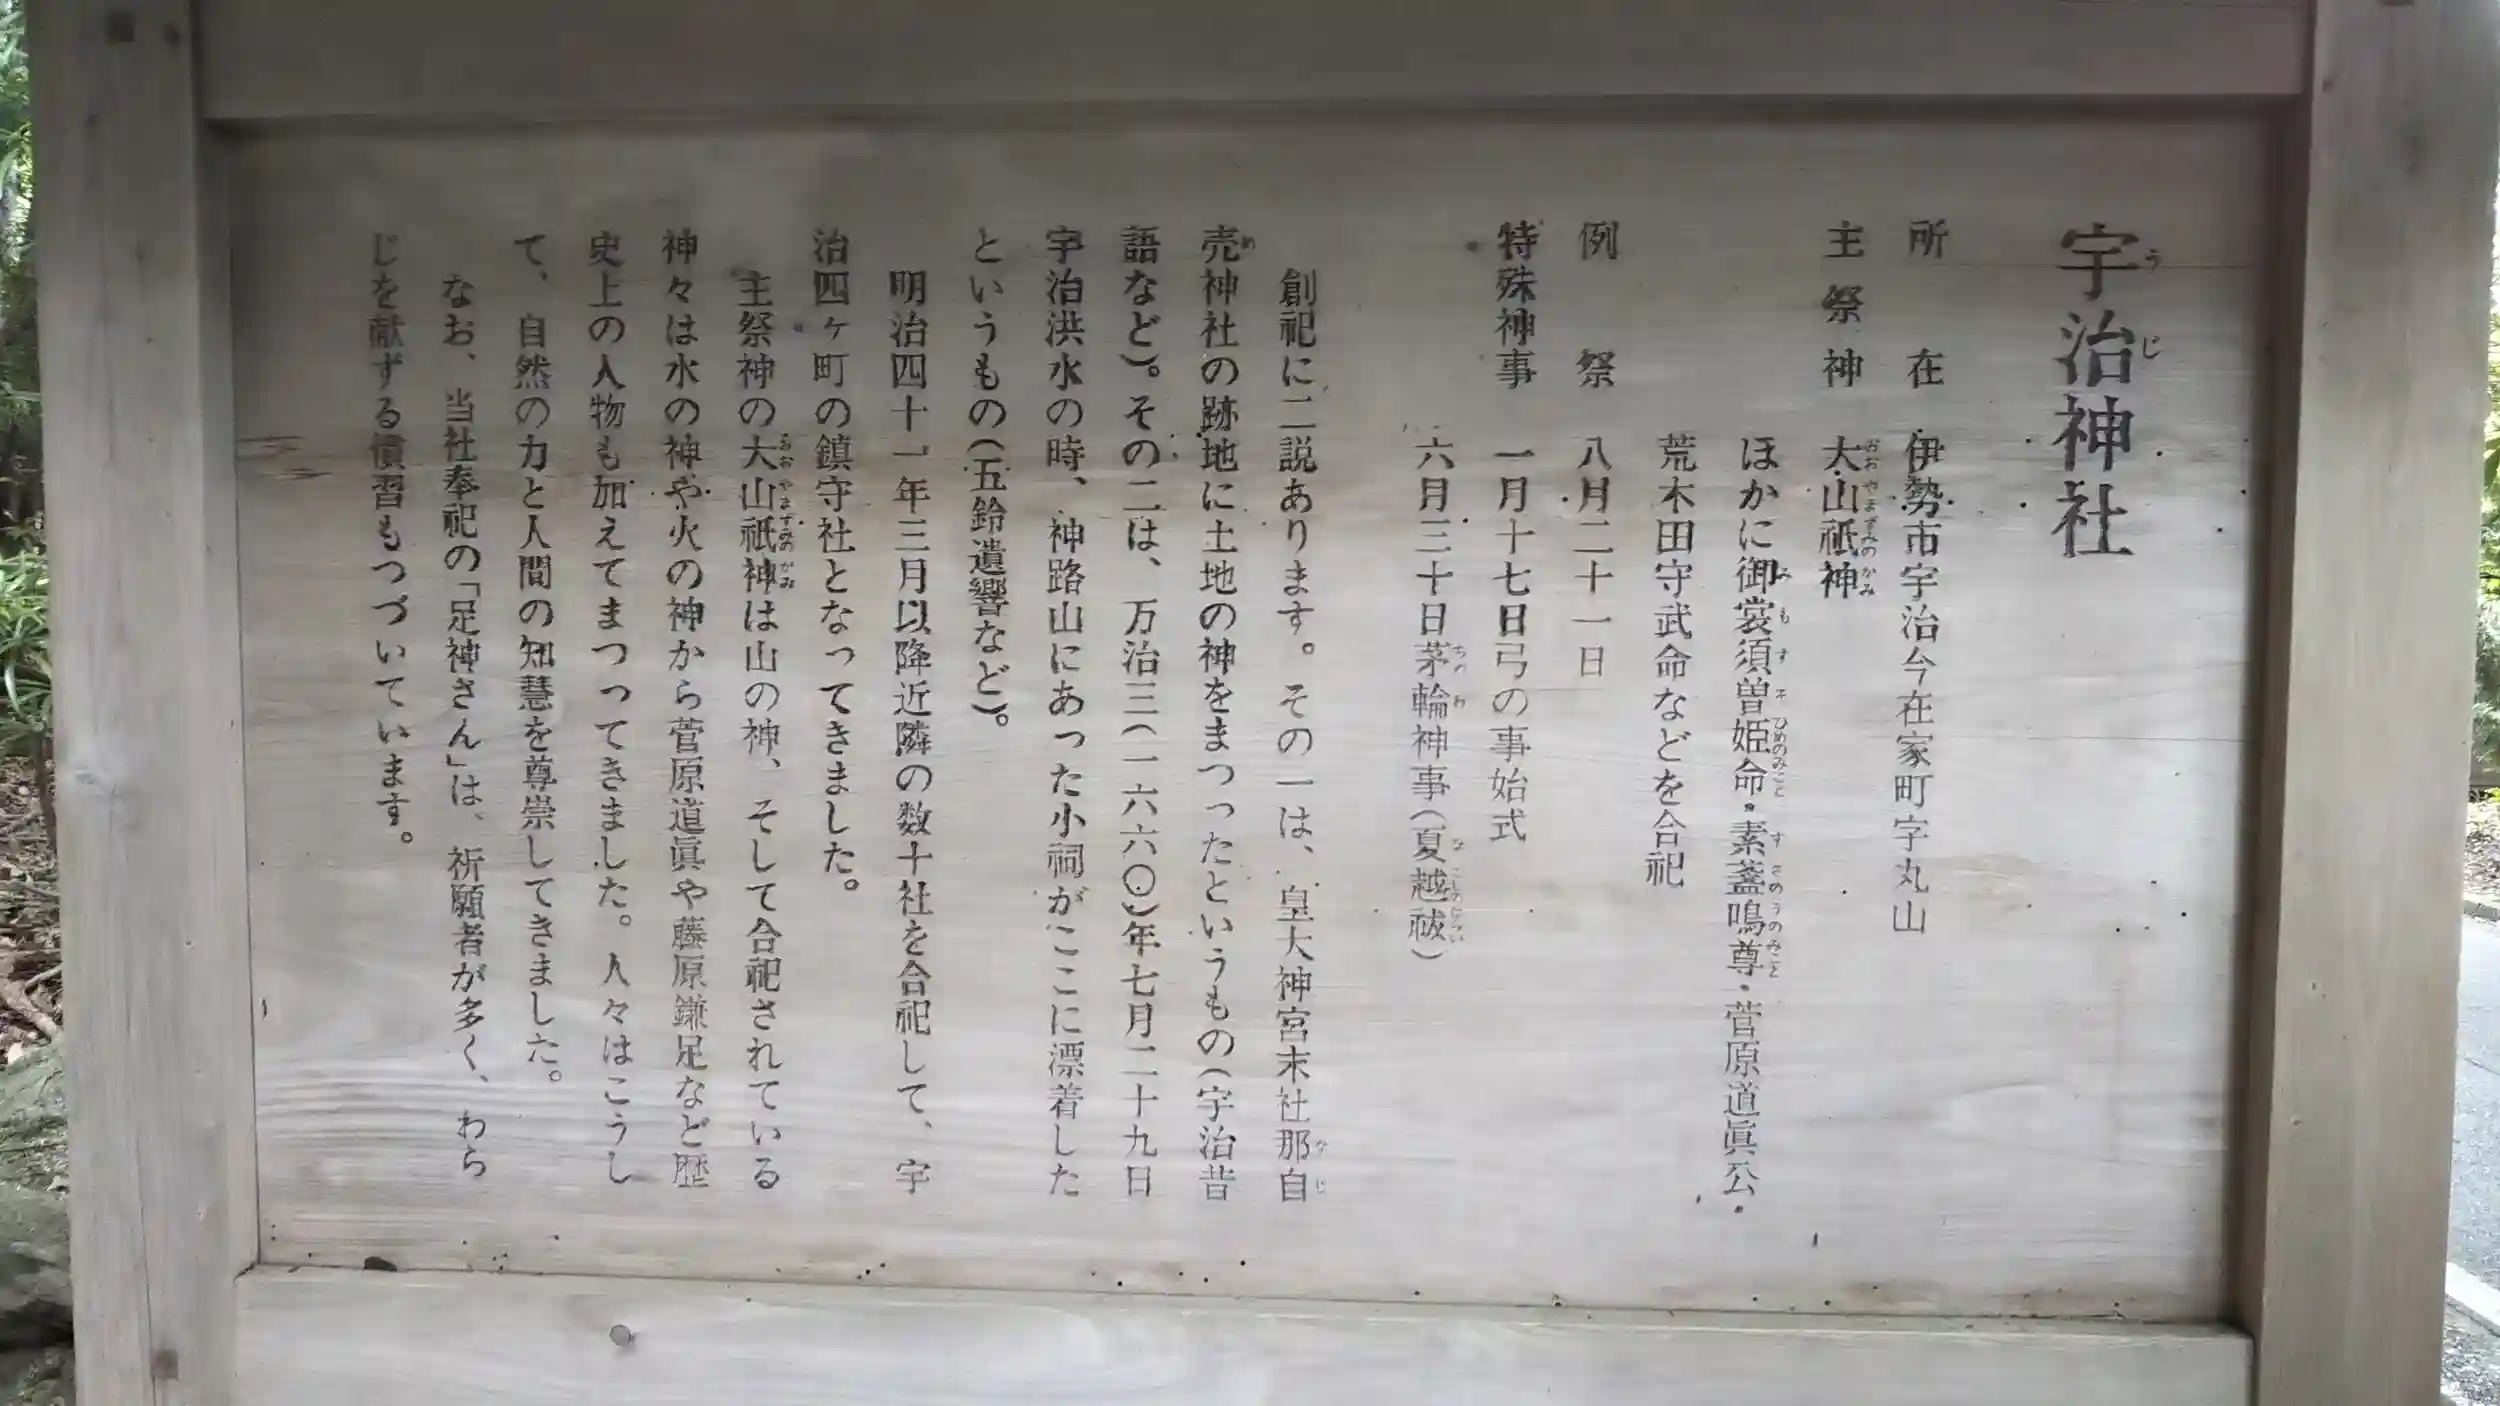 宇治神社
うじ
所在 伊勢市宇治今在家町字丸山
主祭神 大山祇神
おおやまずみのかみ
ほかに御裳須曽姫命・素盞鳴尊・菅原道眞公・
みもすそひめのみこと すさのうのみこと
荒木田守武命などを合祀
例祭 八月二十一日
特殊神事 一月十七日弓の事始式
六月三十日茅輪神事(夏越祓)
ちのわ なごしのはらい
創祀に二説あります。その一は、皇大神宮末社那自
なじ
売神社の跡地に土地の神をまつったというもの(宇治昔
め
語など)。その二は、万治三(一六六〇)年七月二十九日
宇治洪水の時、神路山にあった小祠がここに漂着した
というもの(五鈴遺響など)。
明治四十一年三月以降近隣の数十社を合祀して、宇
治四ヶ町の鎮守社となってきました。
主祭神の大山祇神は山の神、そして合祀されている
おおやまずみのかみ
神々は水の神や火の神から菅原道眞や藤原鎌足など歴
史上の人物も加えてまつってきました。人々はこうし
て、自然の力と人間の知慧を尊崇してきました。
なお、当社奉祀の「足神さん」は、祈願者が多く、わら
じを献ずる慣習もつづいています。